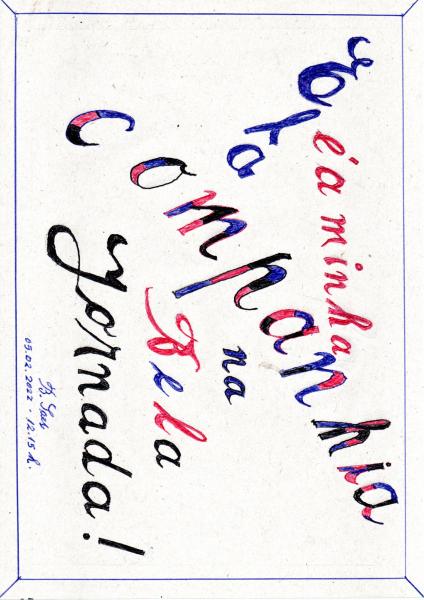 Ela
é a minha
Companhia
na
Bela
Jornada!
05.02.2022 - 12.15 h.